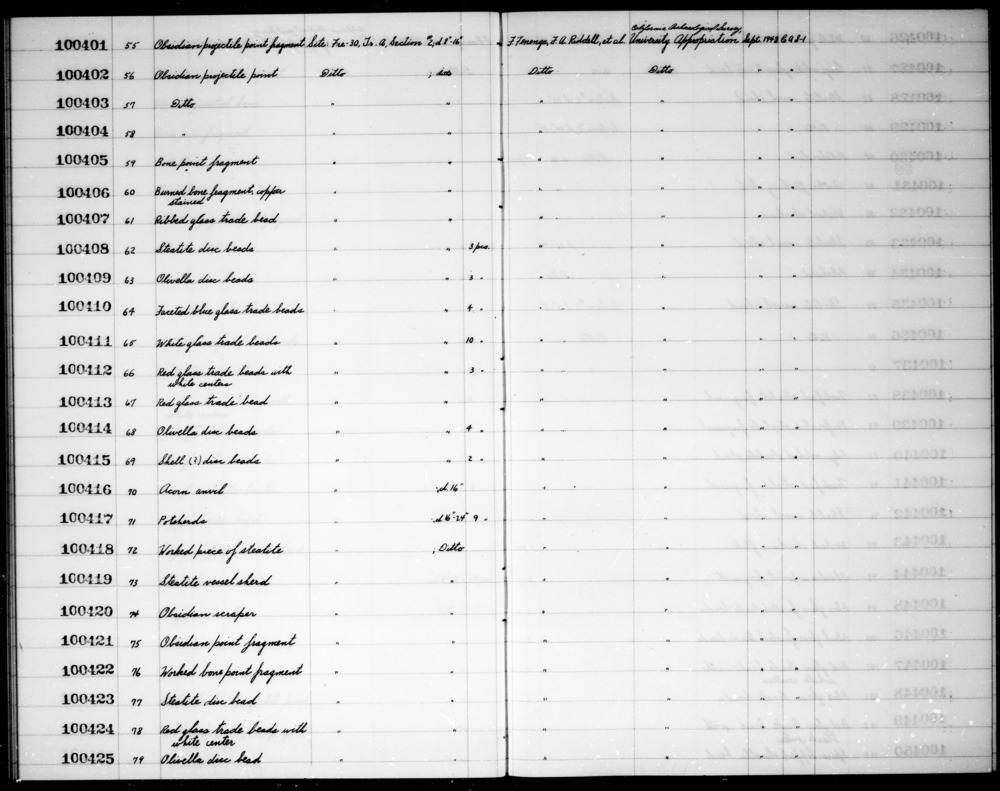 California Archaeological Survey,
100401 55 Obsidian projectile point fragment Site: Fre-30, Tr. A, Section #2, d 8"-16" F. Fenenga, F. A. Riddell, et al. University Appropriation Sept. 1948
100402 56 Obsidian projectile point Ditto ; do. Ditto Ditto " "
100403 57 Ditto " " " " " "
100404 58 " " " " " " "
100405 59 Bone point fragment " " " " " "
100406 60 Burned bone fragment, copper " " " " " "
stained
100407 61 Ribbed glass trade bead " " " " " "
100408 62 Steatite disc beads " " 3 pcs. " " " "
100409 63 Olivella disc beads " " 3 " " " " "
100410 64 Faceted blue glass trade beads " " 4 " " " " "
100411 65 White glass trade beads " " 10 " " " " "
100412 66 Red glass trade beads with " " 3 " " " " "
white centers
100413 67 Red glass trade bead " " " " " "
100414 68 Olivella disc beads " " 4 " " " " "
100415 69 Shell (?) disc beads " " 2 " " " " "
100416 70 Acorn anvil " ; d. 16" " " " "
100417 71 Potsherds " ; d 16"-24" 9 " " " " "
100418 72 Worked piece of steatite " ; Ditto " " " "
100419 73 Steatite vessel sherd " " " " " "
100420 74 Obsidian scraper " " " " " "
100421 75 Obsidian point fragment " " " " " "
100422 76 Worked bone point fragment " " " " " "
100423 77 Steatite disc bead " " " " " "
100424 78 Red glass trade beads with " " " " " "
white center
100425 79 Olivella disc bead " " " " " "